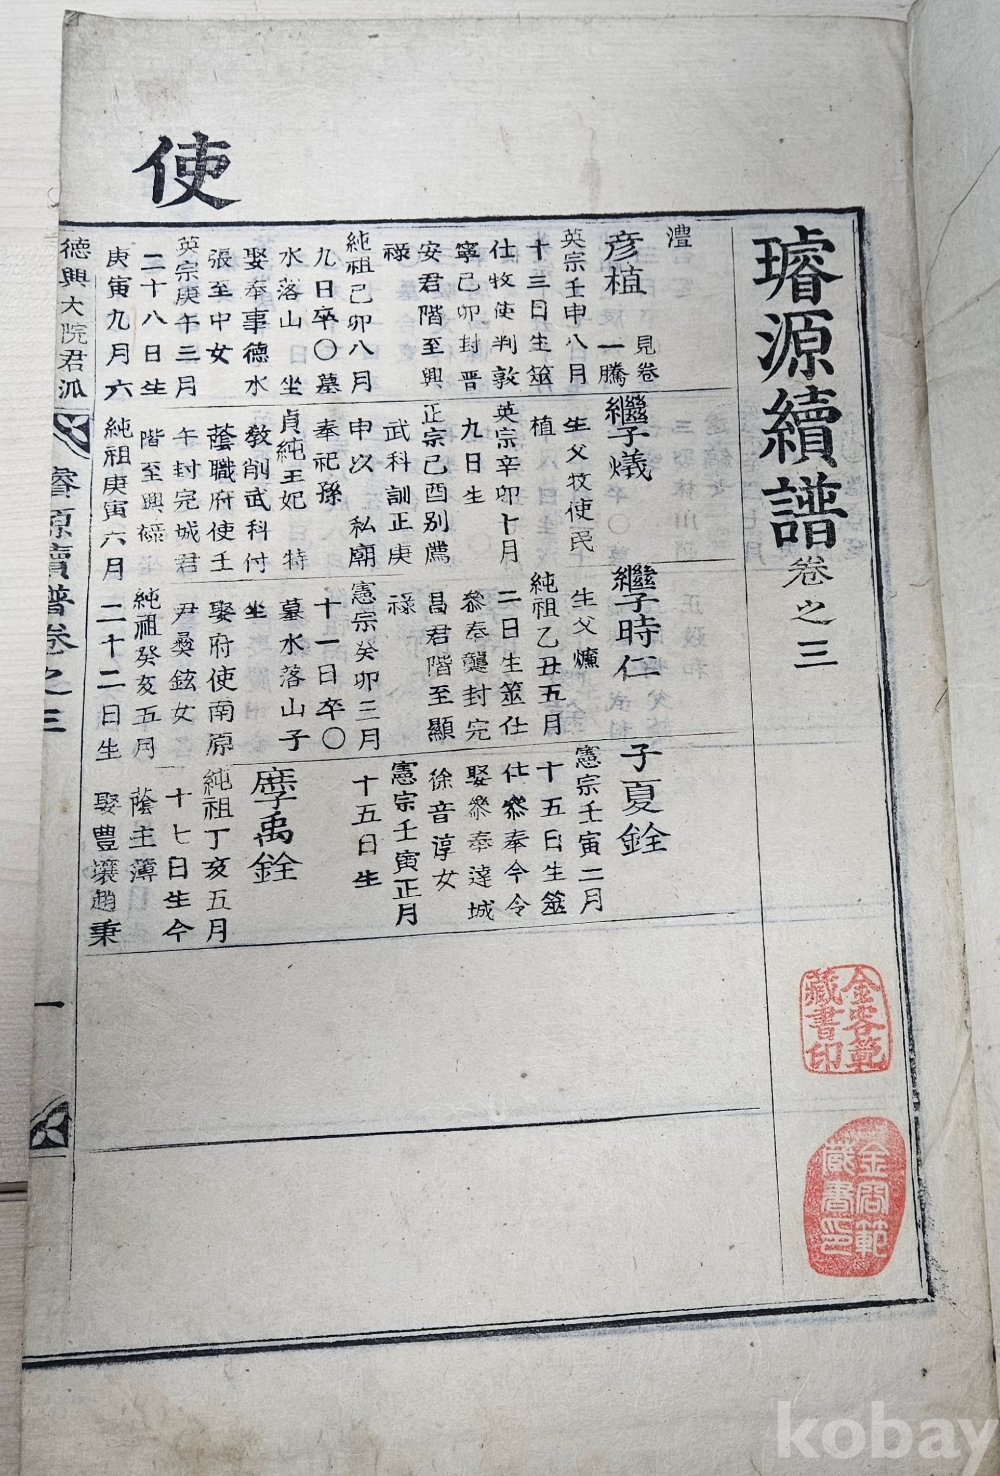 使
璿源續譜卷之三
澧 見卷
彦植 一騰
英宗壬申八月
十三日生筮
仕牧使判敦
寧己卯封晋
安君階至興
祿
純祖己卯八月
九日卒〇墓
水落山 坐
娶奉事德水
張至中女
英宗庚午三月
二十八日生
庚寅九月六
繼子爔
生父牧使民
植
英宗辛卯十月
九日生
正宗己酉别薦
武科訓正庚
申以 私廟
奉祀孫
貞純王妃 特
教削武科付
蔭職府使壬
午封完城君
階至興祿
純祖庚寅六月
繼子時仁
生父爊
純祖乙丑五月
二日生筮仕
叅奉襲封完
昌君階至顯
祿
憲宗癸卯三月
十一日卒〇
墓水落山子
坐
娶府使南原
尹彝鉉女
純祖癸亥五月
二十二日生
子夏銓
憲宗壬寅二月
十五日生筮
仕叅奉今令
娶叅奉達城
徐音淳女
憲宗壬寅正月
十五日生
庶子禹銓
純祖丁亥五月
十七日生今
蔭主簿
娶豊壤趙秉
德興大院君派
璿源續譜卷之三
一
金容範
藏書印
金容範
藏書印
kobay